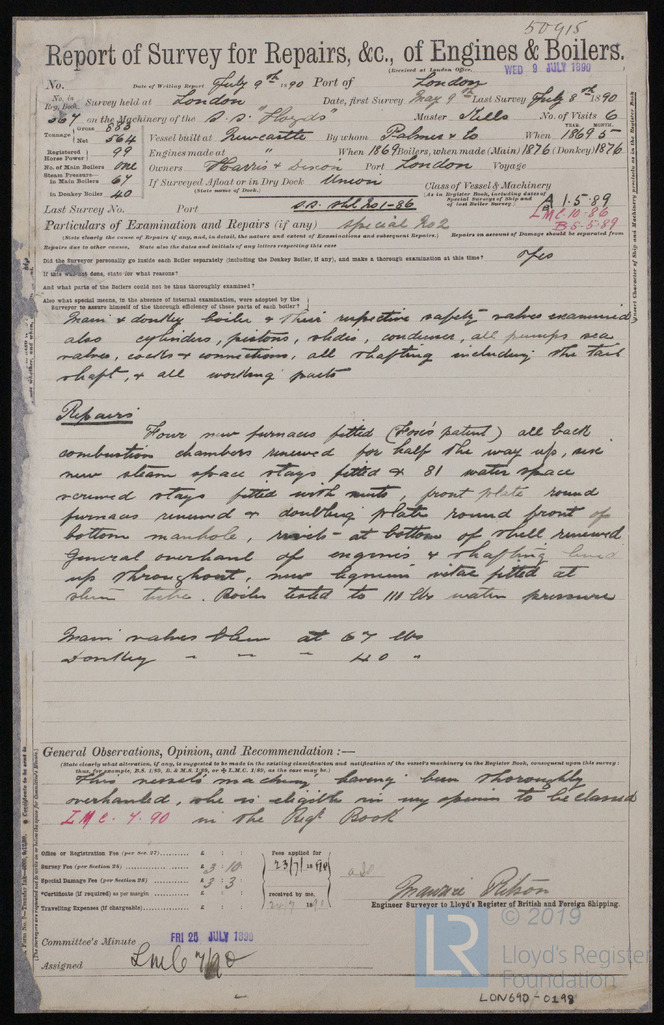 50915
Report of Survey for Repairs, &c., of Engines & Boilers.
(Received at London Office, WED 9 JULY 1890
No. Date of Writing Report July 9th 1890 Port of London
No. in Reg. Book. Survey held at London Date, first Survey May 9th Last Survey July 8th 1890
567 on the Machinery of the S.S. "Lloyds" Master Kells No. of Visits 6
Tonnage Gross 883 Net 564 Vessel built at Newcastle By whom Palmer & Co When 1869 5
YEAR. MONTH.
Registered Horse Power 98 Engines made at " When 1869 Boilers, when made (Main) 1876 (Donkey) 1876
No. of Main Boilers one Owners Harris & Dixon Port London Voyage
Steam Pressure in Main Boilers 67 If Surveyed Afloat or in Dry Dock Union
(State name of Dock.)
in Donkey Boiler 40
Class of Vessel & Machinery
(As in Register Book, including dates of Special Surveys of Ship and of last Boiler Survey.)
A 1.5.89
LMC.10.86
B.S.5.89
Last Survey No. Port S.S. No1-86
Particulars of Examination and Repairs (if any) Special No 2
(State clearly the cause of Repairs if any, and, in detail, the nature and extent of Examinations and subsequent Repairs.) Repairs on account of Damage should be separated from
Repairs due to other causes. State also the dates and initials of any letters respecting this case
Did the Surveyor personally go inside each Boiler separately (including the Donkey Boiler, if any), and make a thorough examination at this time? Yes
If this was not done, state for what reasons?
And what parts of the Boilers could not be thus thoroughly examined?
Also what special means, in the absence of internal examination, were adopted by the
Surveyor to assure himself of the thorough efficiency of those parts of each boiler?
Main & donkey boiler & their respective safety valves examined
also cylinders, pistons, slides, condenser, all pumps sea
valves, cocks & connections, all shafting including the tail
shaft, & all working parts
Repairs
Four new furnaces fitted (Fox's patent) all back
combustion chambers renewed for half the way up, nine
new steam space stays fitted & 81 water space
screwed stays fitted with nuts, front plate round
furnaces renewed & doubling plate round front of
bottom manhole, rivets at bottom of shell renewed
General overhaul of engines & shafting lined
up throughout, new lignum vitae fitted at
stern tube. Boiler tested to 110 lbs water pressure
Main valves blew at 67 lbs
Donkey " " " 40 "
General Observations, Opinion, and Recommendation :—
(State clearly what alteration, if any, is suggested to be made in the existing classification and notification of the vessel's machinery in the Register Book, consequent upon this survey:
thus, for example, B.S. 1,89, B. & M.S. 1,89, or L.M.C. 1,89, as the case may be.)
This vessel's machiny having been thoroughly
overhauled, she is eligible in my opinion to be classed
L.M.C. 7.90 in the Regr Book
Office or Registration Fee (per Sec. 27)...... £ : : Fees applied for
Survey Fee (per Section 28) ............ £ 3 : 10 : 23/7/1890
Special Damage Fee (per Section 28) £ 3 : 3
*Certificate (if required) as per margin £ : : received by me,
Travelling Expenses (if chargeable)... £ : :
Engineer Surveyor to Lloyd's Register of British and Foreign Shipping.
Committee's Minute FRI 25 JULY 1890
Assigned LMC 7/90
© 2019
LR
Lloyd's Register
Foundation
LON690-0198